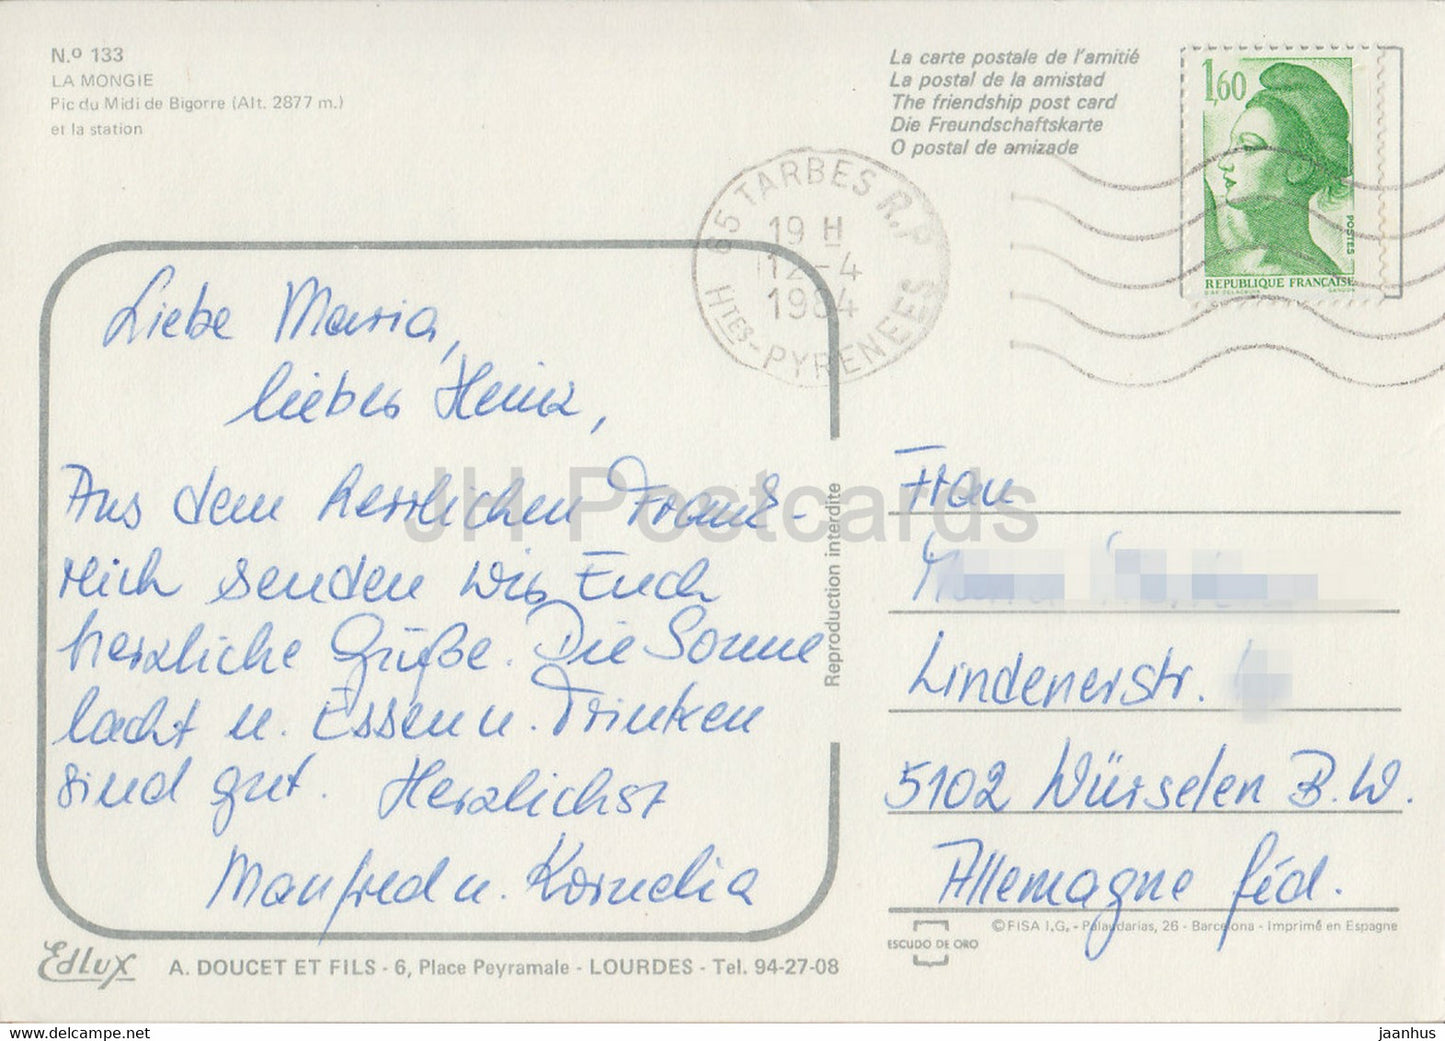 N.º 133
LA MONGIE
Pic du Midi de Bigorre (Alt. 2877 m.)
et la station
La carte postale de l'amitié
La postal de la amistad
The friendship post card
Die Freundschaftskarte
O postal de amizade
1,60
POSTES
REPUBLIQUE FRANÇAISE
65 TARBES R.P
19 H
12-4
1984
HTES-PYRENEES
Liebe Maria,
lieber Heinz,
Aus dem herrlichen Frank-
reich senden wir Euch
herzliche Grüße. Die Sonne
lacht u. Essen u. Trinken
sind gut. Herzlichst
Manfred u. Kornelia
Reproduction interdite
Frau
Lindenerstr.
5102 Würselen B.W.
Allemagne féd.
JH Postcards
Edlux
A. DOUCET ET FILS - 6, Place Peyramale - LOURDES - Tel. 94-27-08
ESCUDO DE ORO
© FISA I.G. - Palaudarias, 26 - Barcelona - Imprimé en Espagne
www.delcampe.net
jaanhus